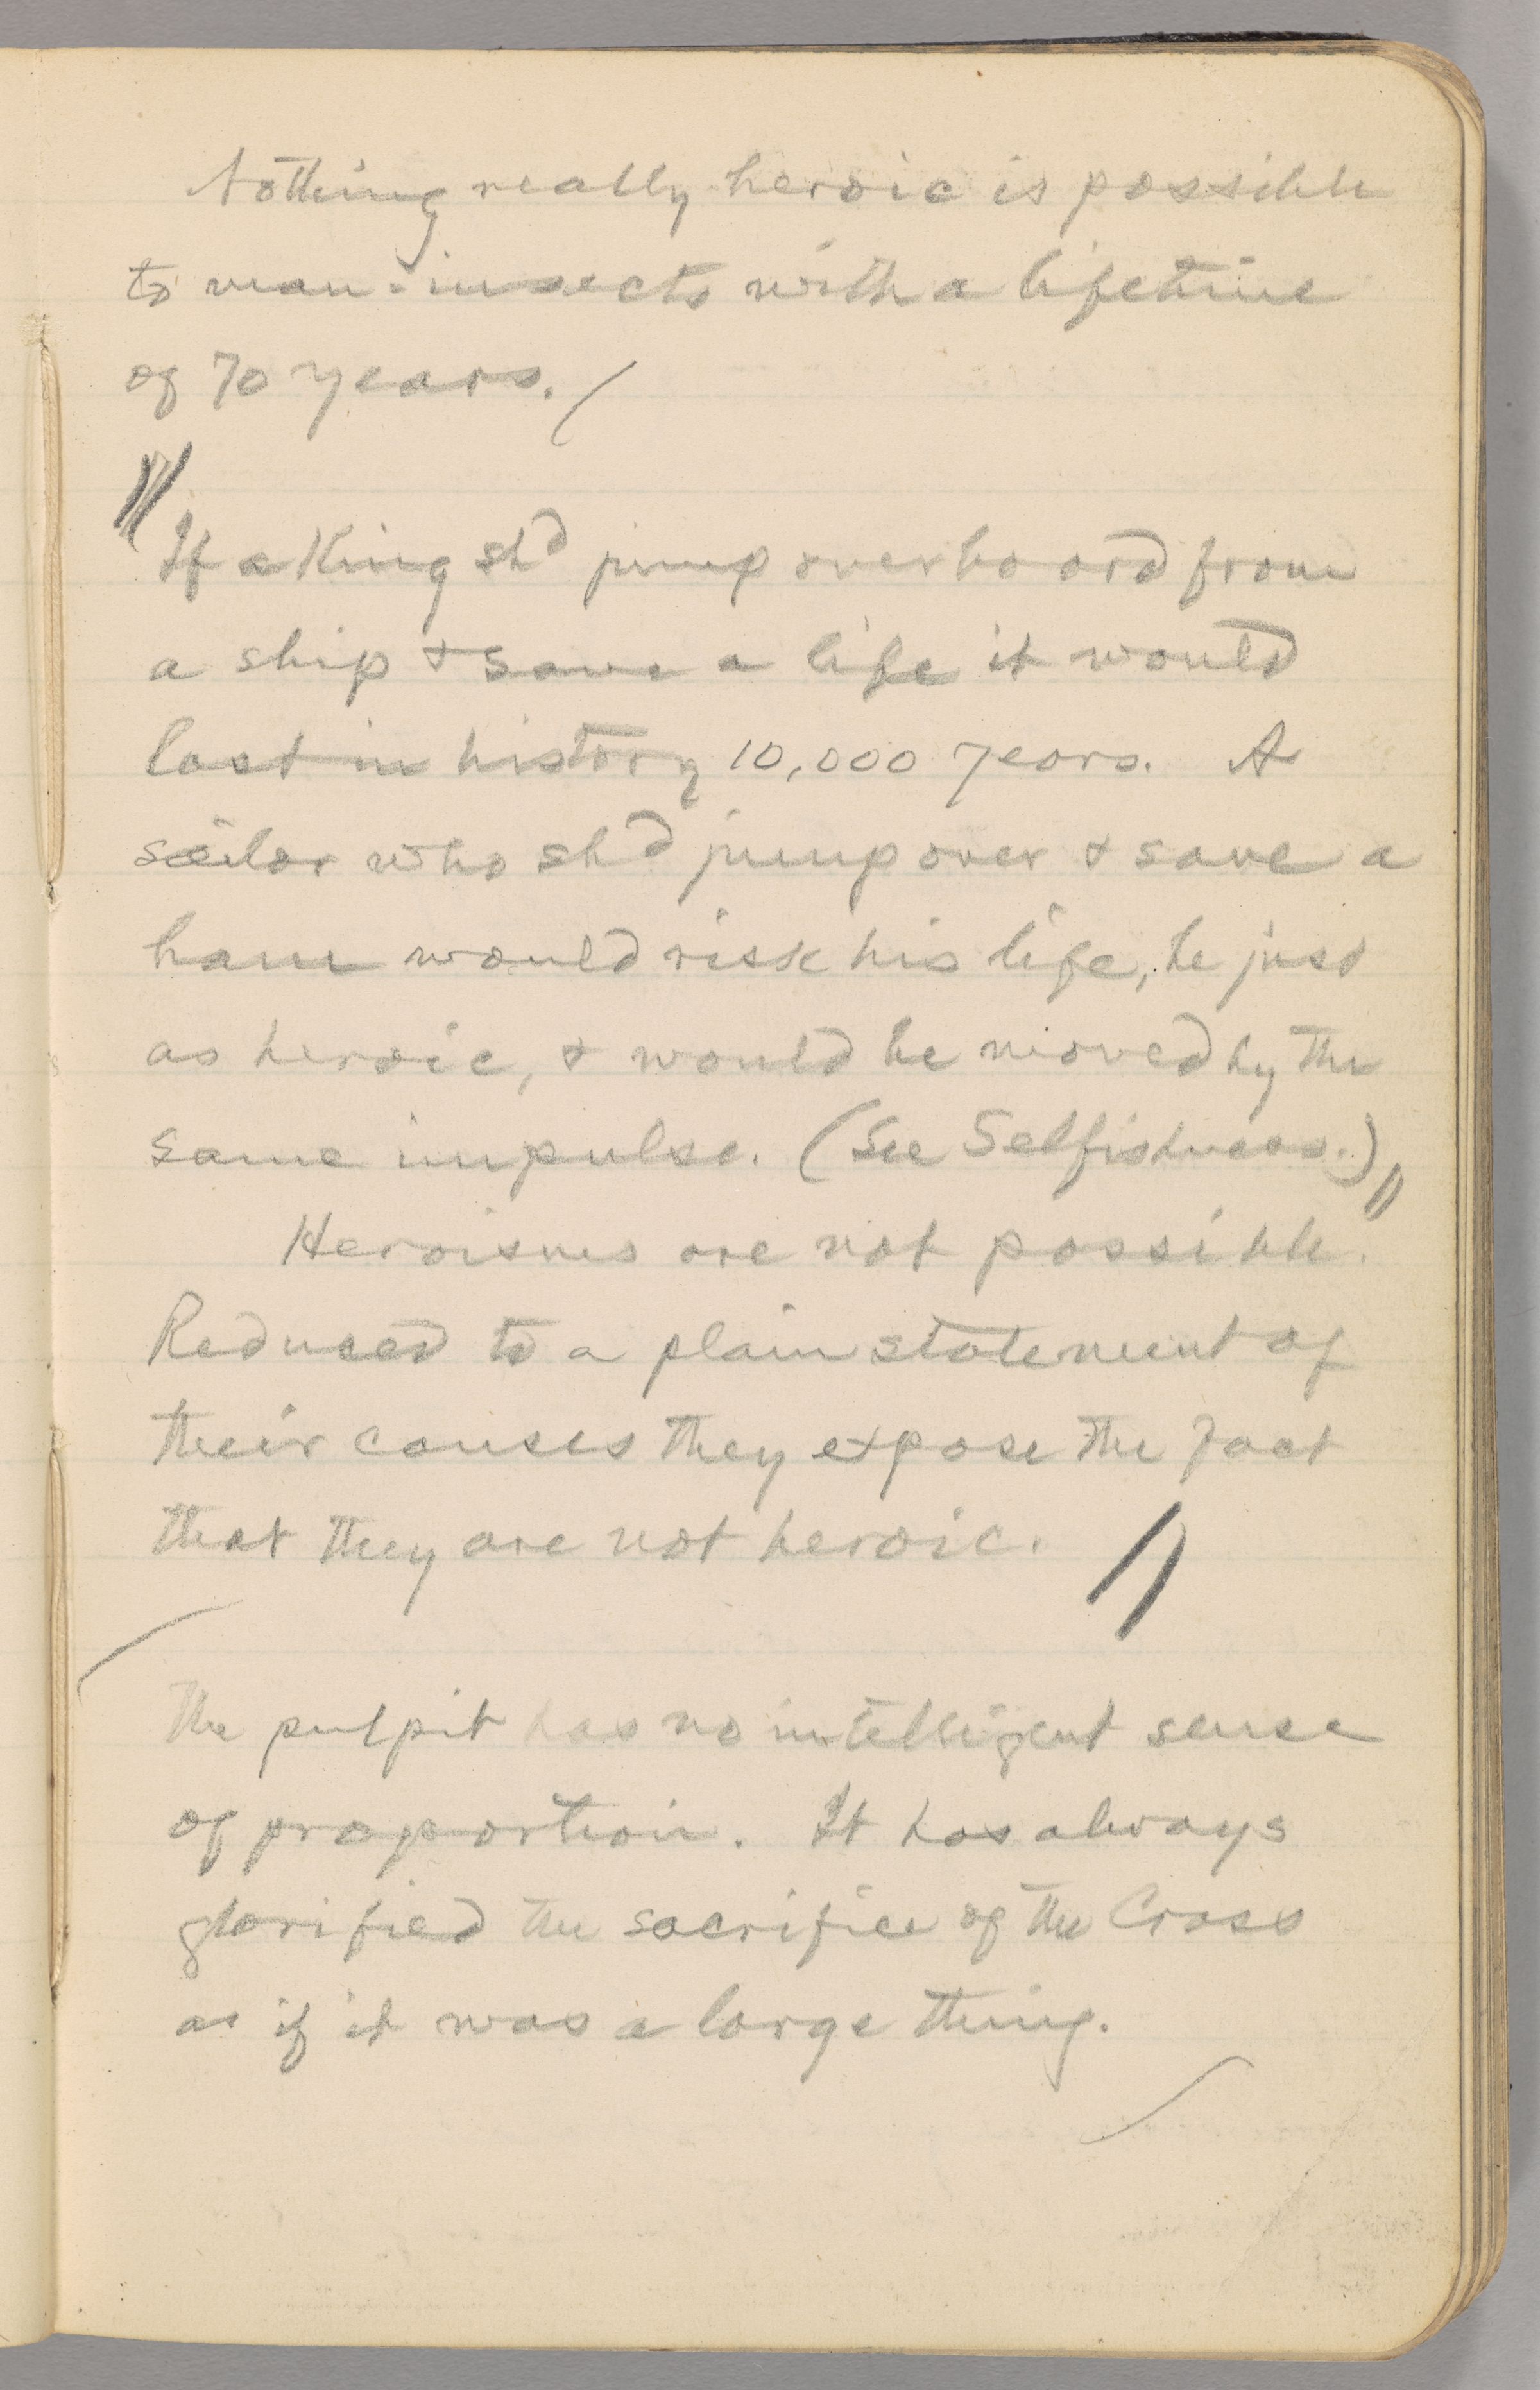 Nothing really heroic is possible
to man-insects with a lifetime
of 70 years. /
If a King shd jump overboard from
a ship & save a life it would
last in history 10,000 years. A
sailor who shd jump over & save a
ham would risk his life, be just
as heroic, & would be moved by the
same impulse. (See Selfishness.) //
Heroisms are not possible.
Reduced to a plain statement of
their causes they expose the fact
that they are not heroic. //
The pulpit has no intelligent sense
of proportion. It has always
glorified the sacrifice of the Cross
as if it was a large thing.